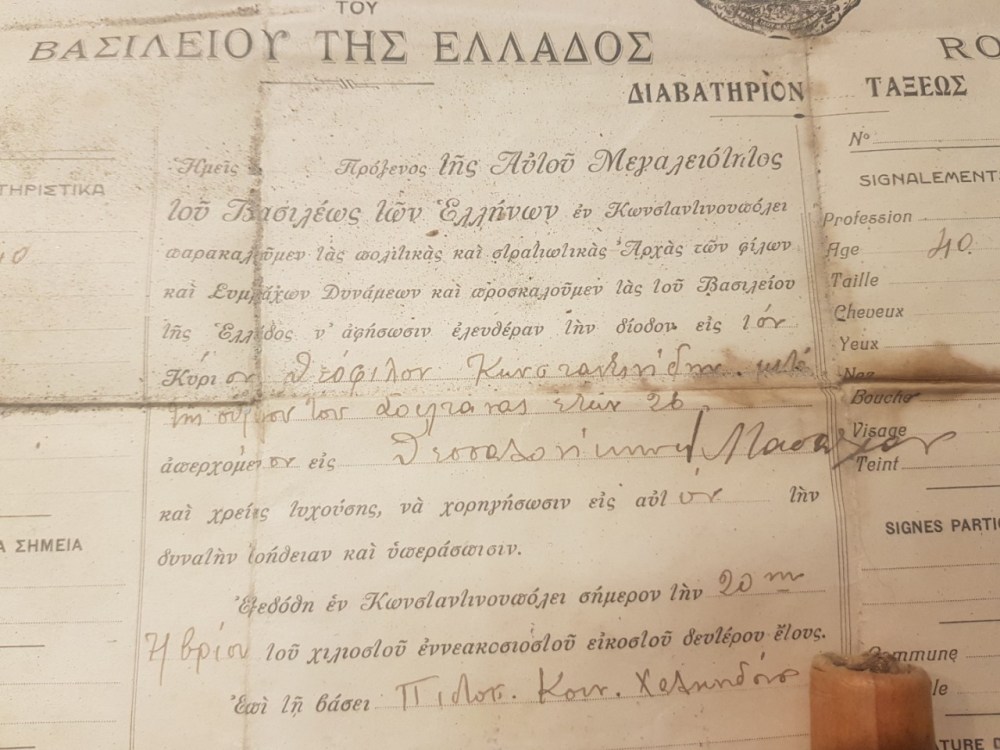 ΤΟΥ
ΒΑΣΙΛΕΙΟΥ ΤΗΣ ΕΛΛΑΔΟΣ
RO
ΔΙΑΒΑΤΗΡΙΟΝ ΤΑΞΕΩΣ
Nº
ΤΗΡΙΣΤΙΚΑ
Ἡμεῖς Πρόξενος τῆς Αὐτοῦ Μεγαλειότητος
τοῦ Βασιλέως τῶν Ἑλλήνων ἐν Κωνσταντινουπόλει
παρακαλοῦμεν τὰς πολιτικὰς καὶ στρατιωτικὰς Ἀρχὰς τῶν φίλων
καὶ Συμμάχων Δυνάμεων καὶ προσκαλοῦμεν τὰς τοῦ Βασιλείου
τῆς Ἑλλάδος ν' ἀφήσωσιν ἐλευθέραν τὴν δίοδον εἰς τόν
Κύριον Θεόφιλον Κωνσταντινίδην μετά
της συζύγου του Σουλτάνας ετών 26
ἀπερχόμενον εἰς Θεσσαλονίκην
καὶ χρείας τυχούσης, νὰ χορηγήσωσιν εἰς αὐτόν τὴν
δυνατὴν βοήθειαν καὶ ὑπεράσπισιν.
Ἐξεδόθη ἐν Κωνσταντινουπόλει σήμερον τὴν 20ην
7βρίου τοῦ χιλιοστοῦ ἐννεακοσιοστοῦ εἰκοστοῦ δευτέρου ἔτους.
Ἐπὶ τῇ βάσει Πιστοπ. Κοιν. Χαλκηδόνος
Α ΣΗΜΕΙΑ
SIGNALEMENTS
Profession
Age 40
Taille
Cheveux
Yeux
Nez
Bouche
Visage
Teint
SIGNES PARTIC
Commune
TURE D